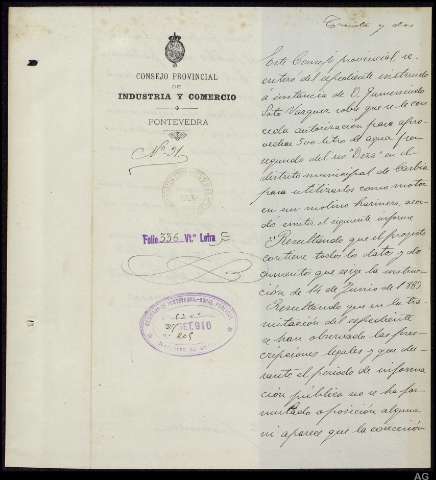 Treinta y dos
CONSEJO PROVINCIAL
DE
INDUSTRIA Y COMERCIO
PONTEVEDRA
Nº 21.
Folio 336 Vtº Letra
DIC 910
Este Consejo provincial, se
entero del expediente instruido
á instancia de D. Gumersindo
Soto Vazquez sobre que se le con-
ceda autorizacion para apro-
vechar 500 litros de agua por
segundo del rio "Deza" en el
distrito municipal de Carbia
para utilizarlos como motor
en un molino harinero, acor-
dó emitir el siguiente informe
Resultando que el proyecto
contiene todos los datos y do-
cumentos que exige la instruc-
ción de 14 de Junio de 1883
Resultando que en la tra-
mitación del expediente
se han observado las pres-
cripciones legales y que du-
rante el periodo de informa-
ción pública no se ha for-
mulado oposición alguna
ni aparece que la concesión
AG